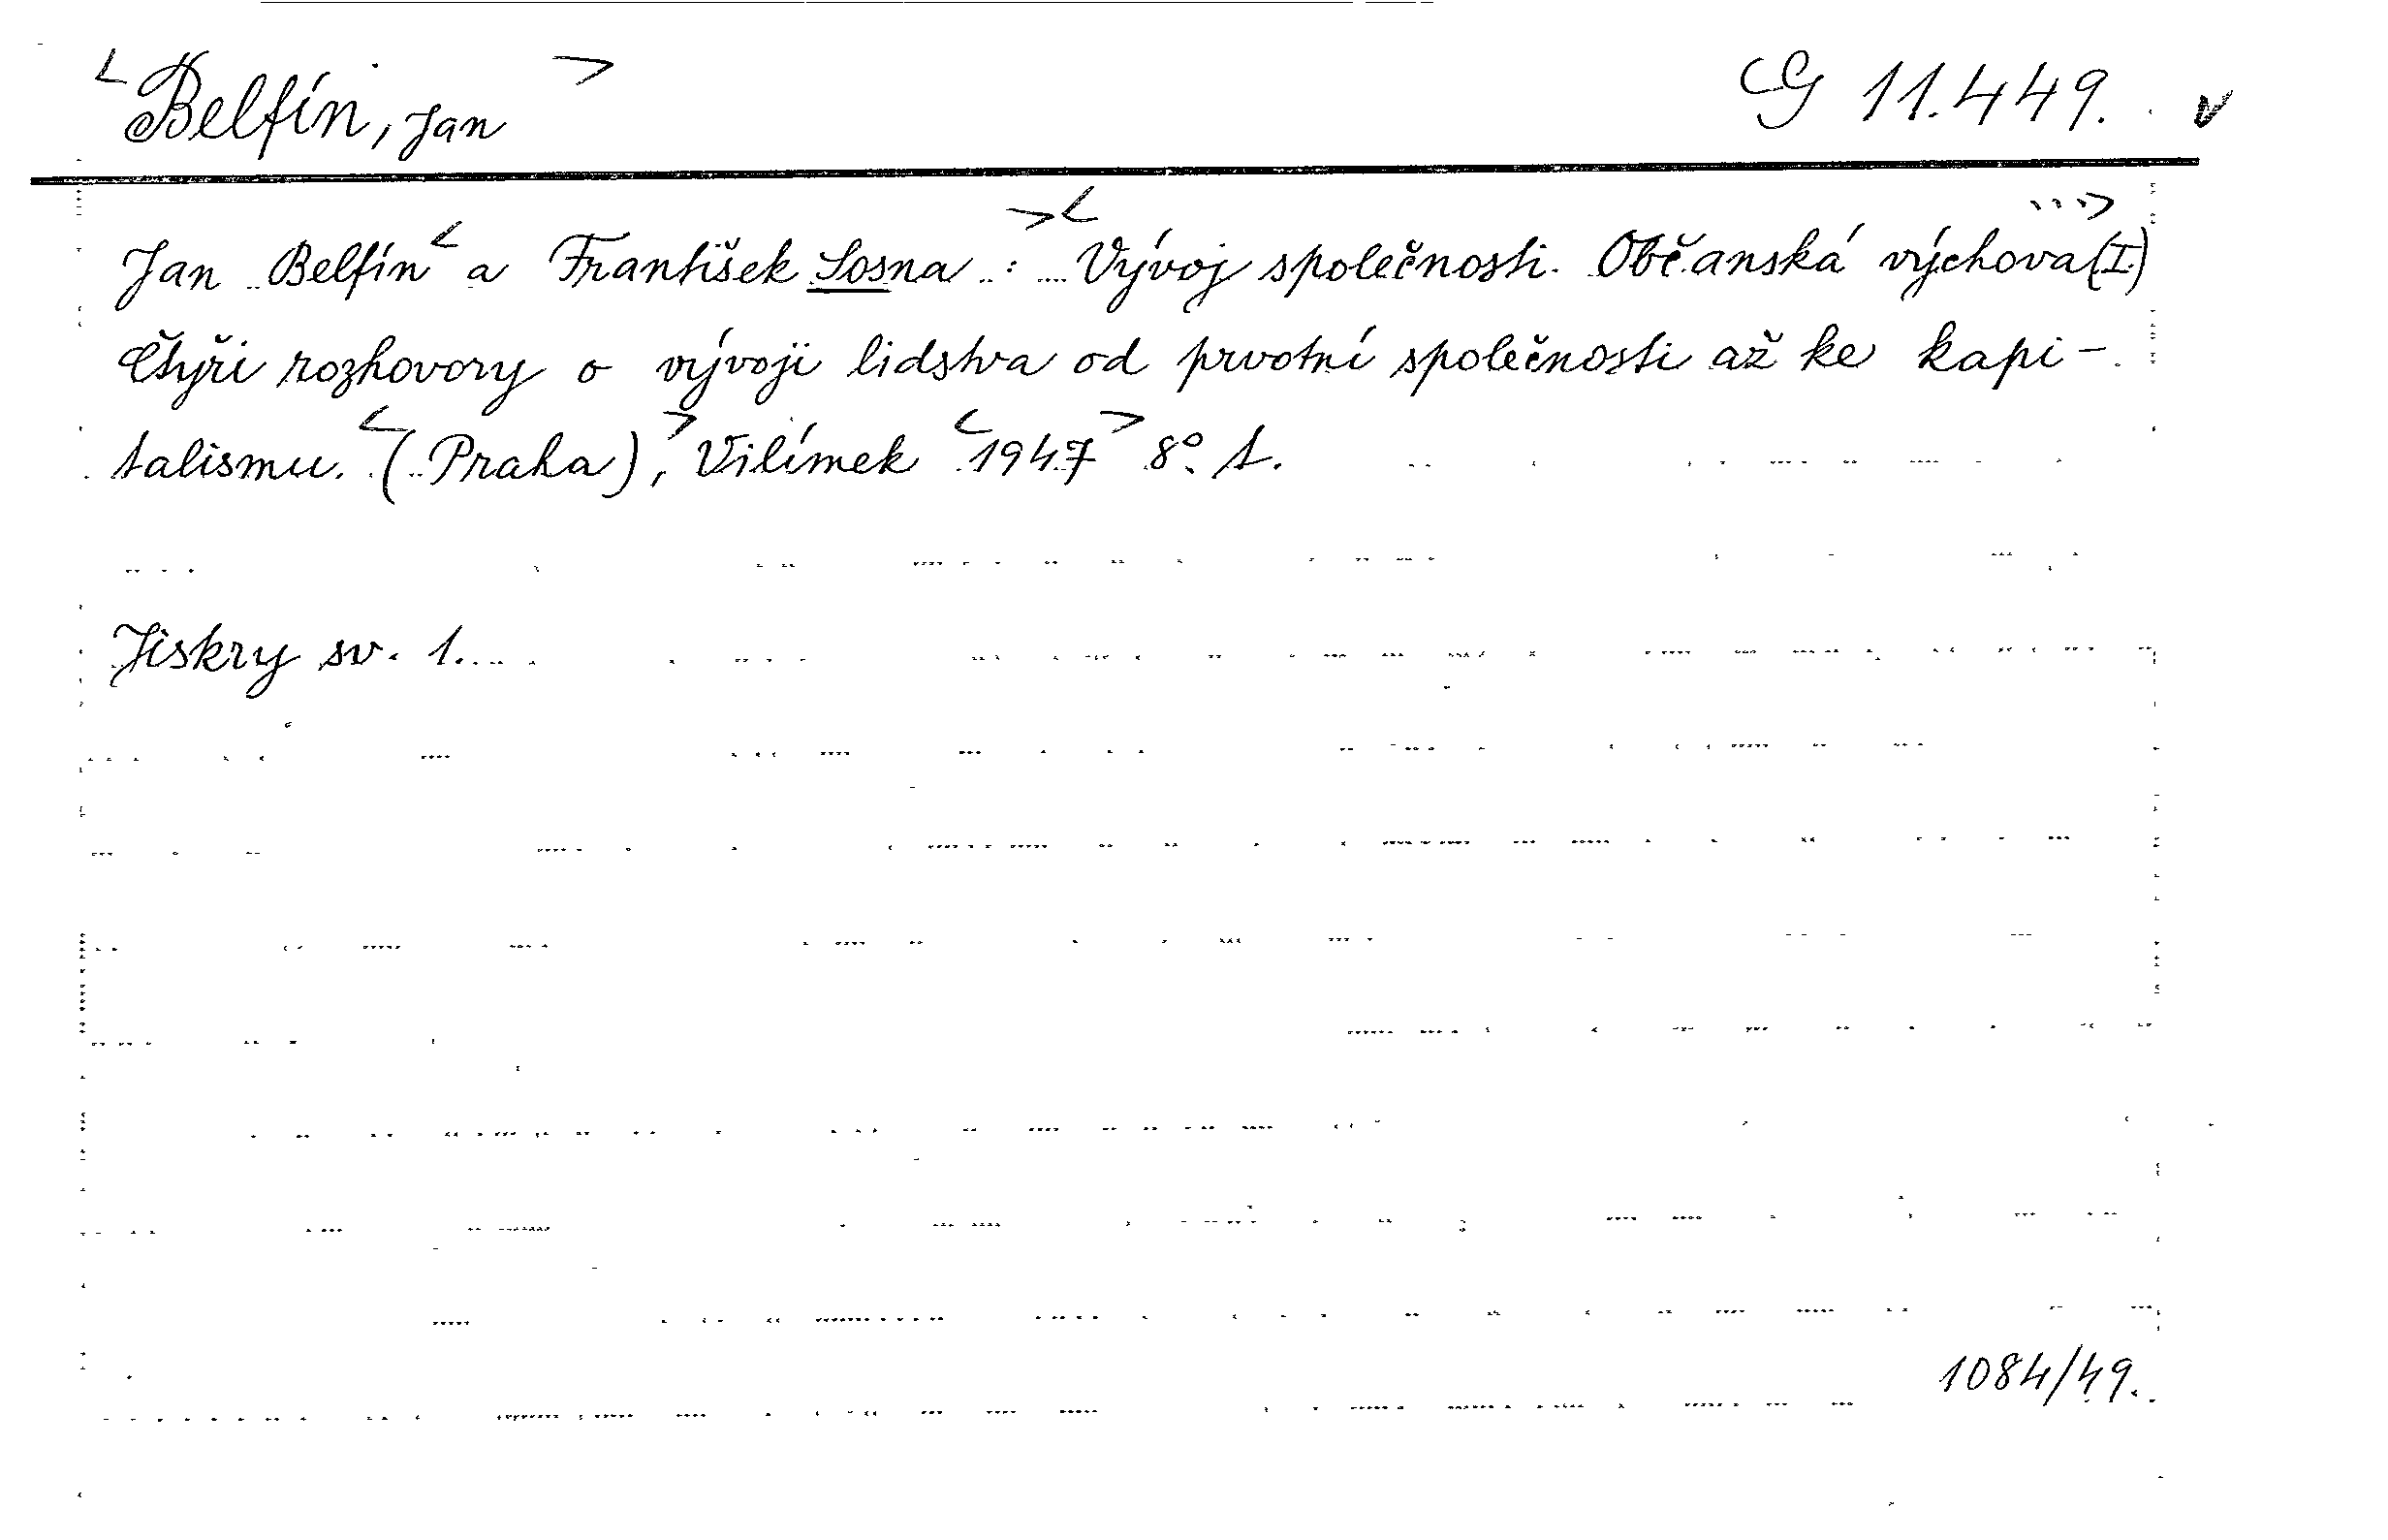 <Belfín, Jan> G 11.449. v
Jan Belfín <a František Sosna:> <Vývoj společnosti. Občanská výchova (I.)...>
Čtyři rozhovory o vývoji lidstva od prvotní společnosti až ke kapi-
talismu. <(Praha),> Vilímek <1947> 8°. 1.
Jiskry sv. 1.
1084/49.